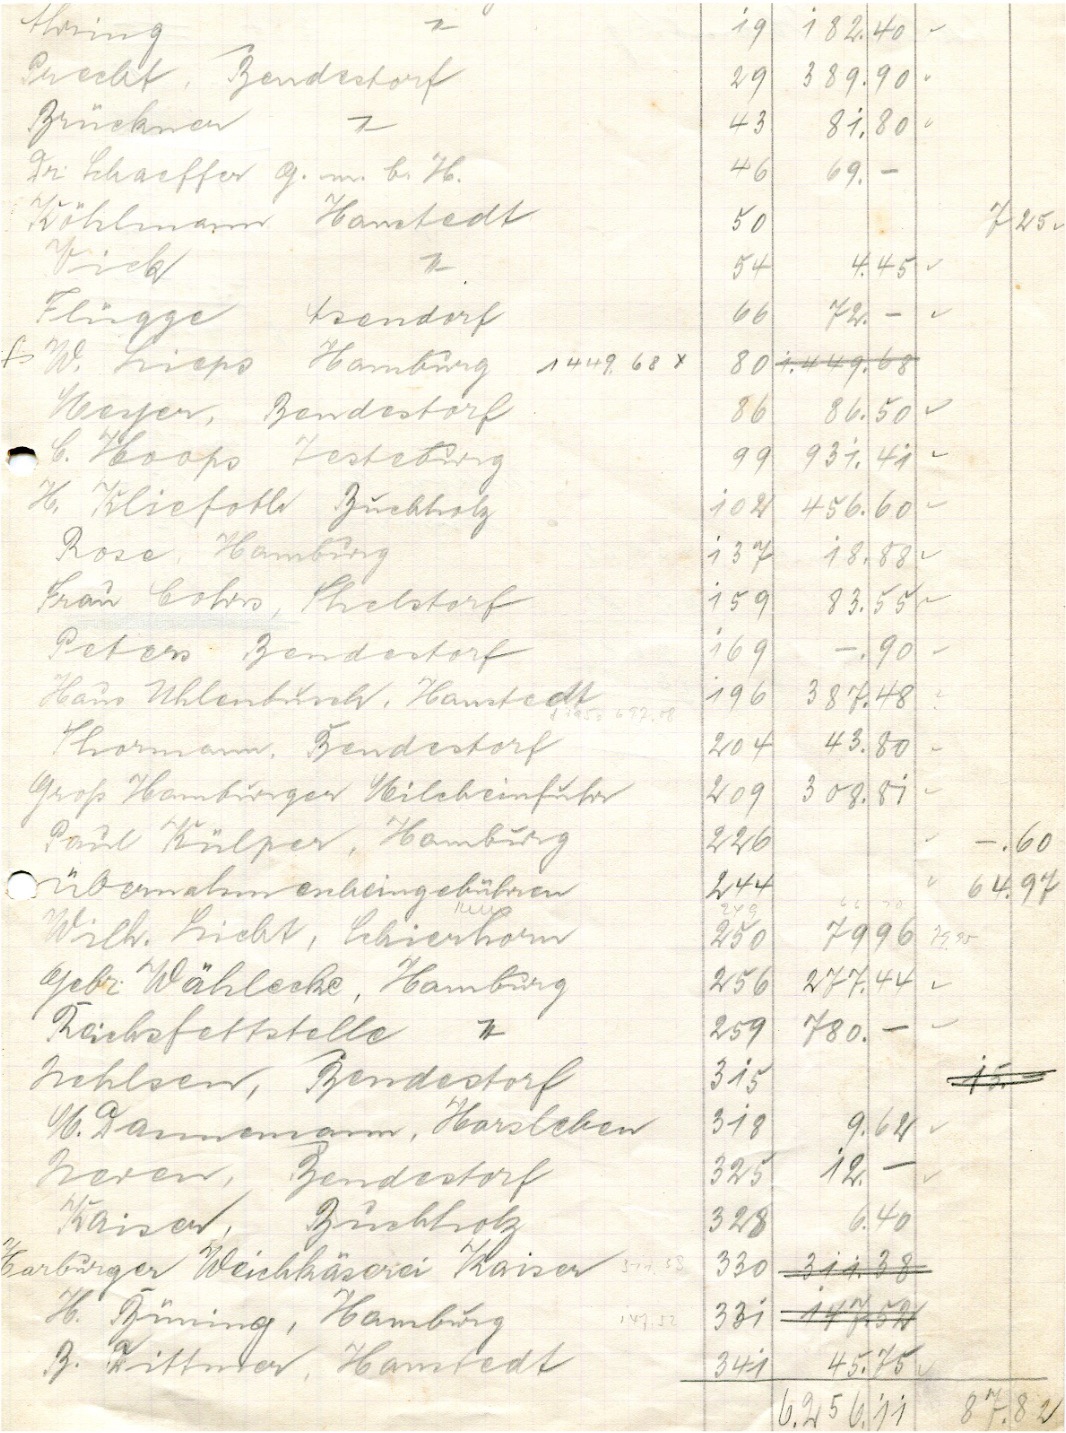 〃 19 182.40
Precht, Bendestorf 29 389.90
Brückner 〃 43 81.80
Dr. Schaeffer G. m. b. H. 46 69.-
Köhlmann Hanstedt 50 7 25.
Vick 〃 54 4.45
Flügge Asendorf 66 72.-
W. Lieps Hamburg 1449.68 x 80 1.449.68
Meyer, Bendestorf 86 86.50
C. Hoops Jesteburg 99 931.41
H. Kliefoth Buchholz 102 456.60
Rose, Hamburg 137 18.88
Frau Cohrs, Thelstorf 159 83.55
Peters Bendestorf 169 -.90
Haus Uhlenbusch, Hanstedt 196 387.48
Thormann, Bendestorf 204 43.80
Groß Hamburger Milcheinfuhr 209 308.81
Paul Külper, Hamburg 226 -.60
244 64.97
Wilh. Licht, Schierhorn 250 79 96
Gebr. Wählecke, Hamburg 256 277.44
Reichsfettstelle 〃 259 780.-
Nehlsen, Bendestorf 315 15.-
M. Dannemann, Harsleben 318 9.62
Bendestorf 325 12.-
Kaiser, Buchholz 328 6.40
Harburger Weichkäserei Kaiser 311.38 330 311.38
H. Büning, Hamburg 147.52 331 147.52
Hanstedt 341 45.75
6.256.11 87.82